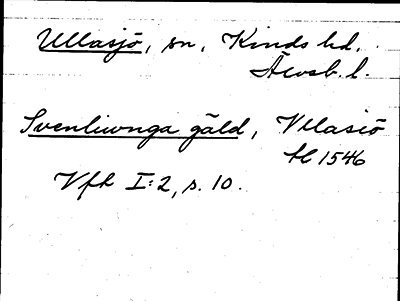 Ullasjö, sn, Kinds hd.
Älvsb. l.
Svenliunga gäld, Vllasiö
tl 1546
Vfh I:2, s. 10.